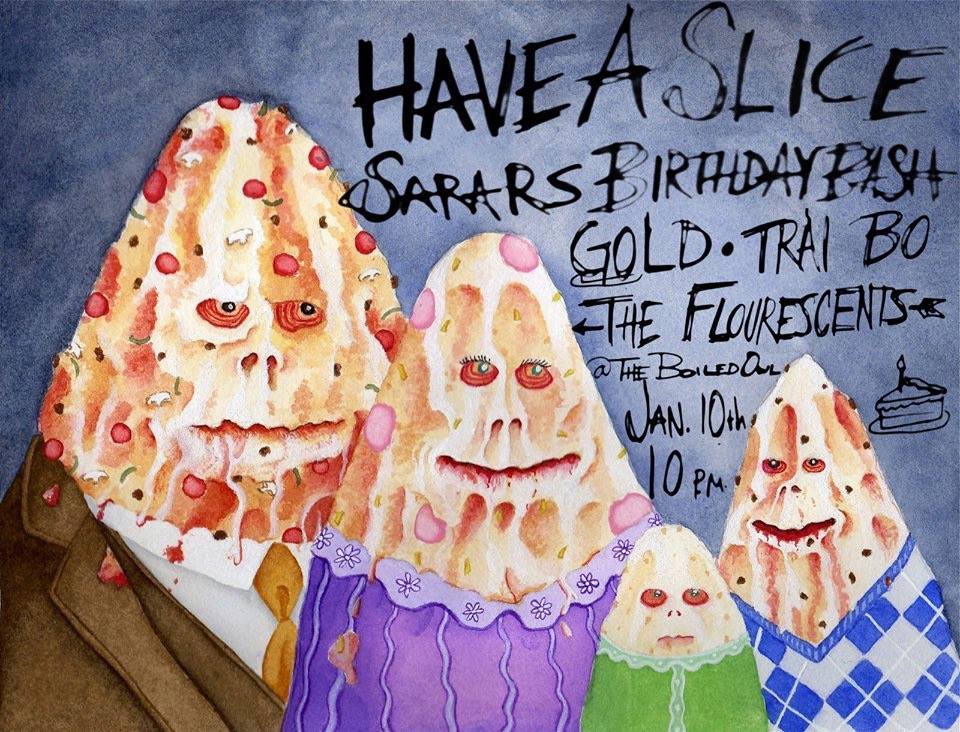 HAVE A SLICE
SARARS BIRTHDAY BASH
GOLD • TRAI BO
THE FLOURESCENTS
@ THE BOILED OWL
JAN. 10th
10 P.M.